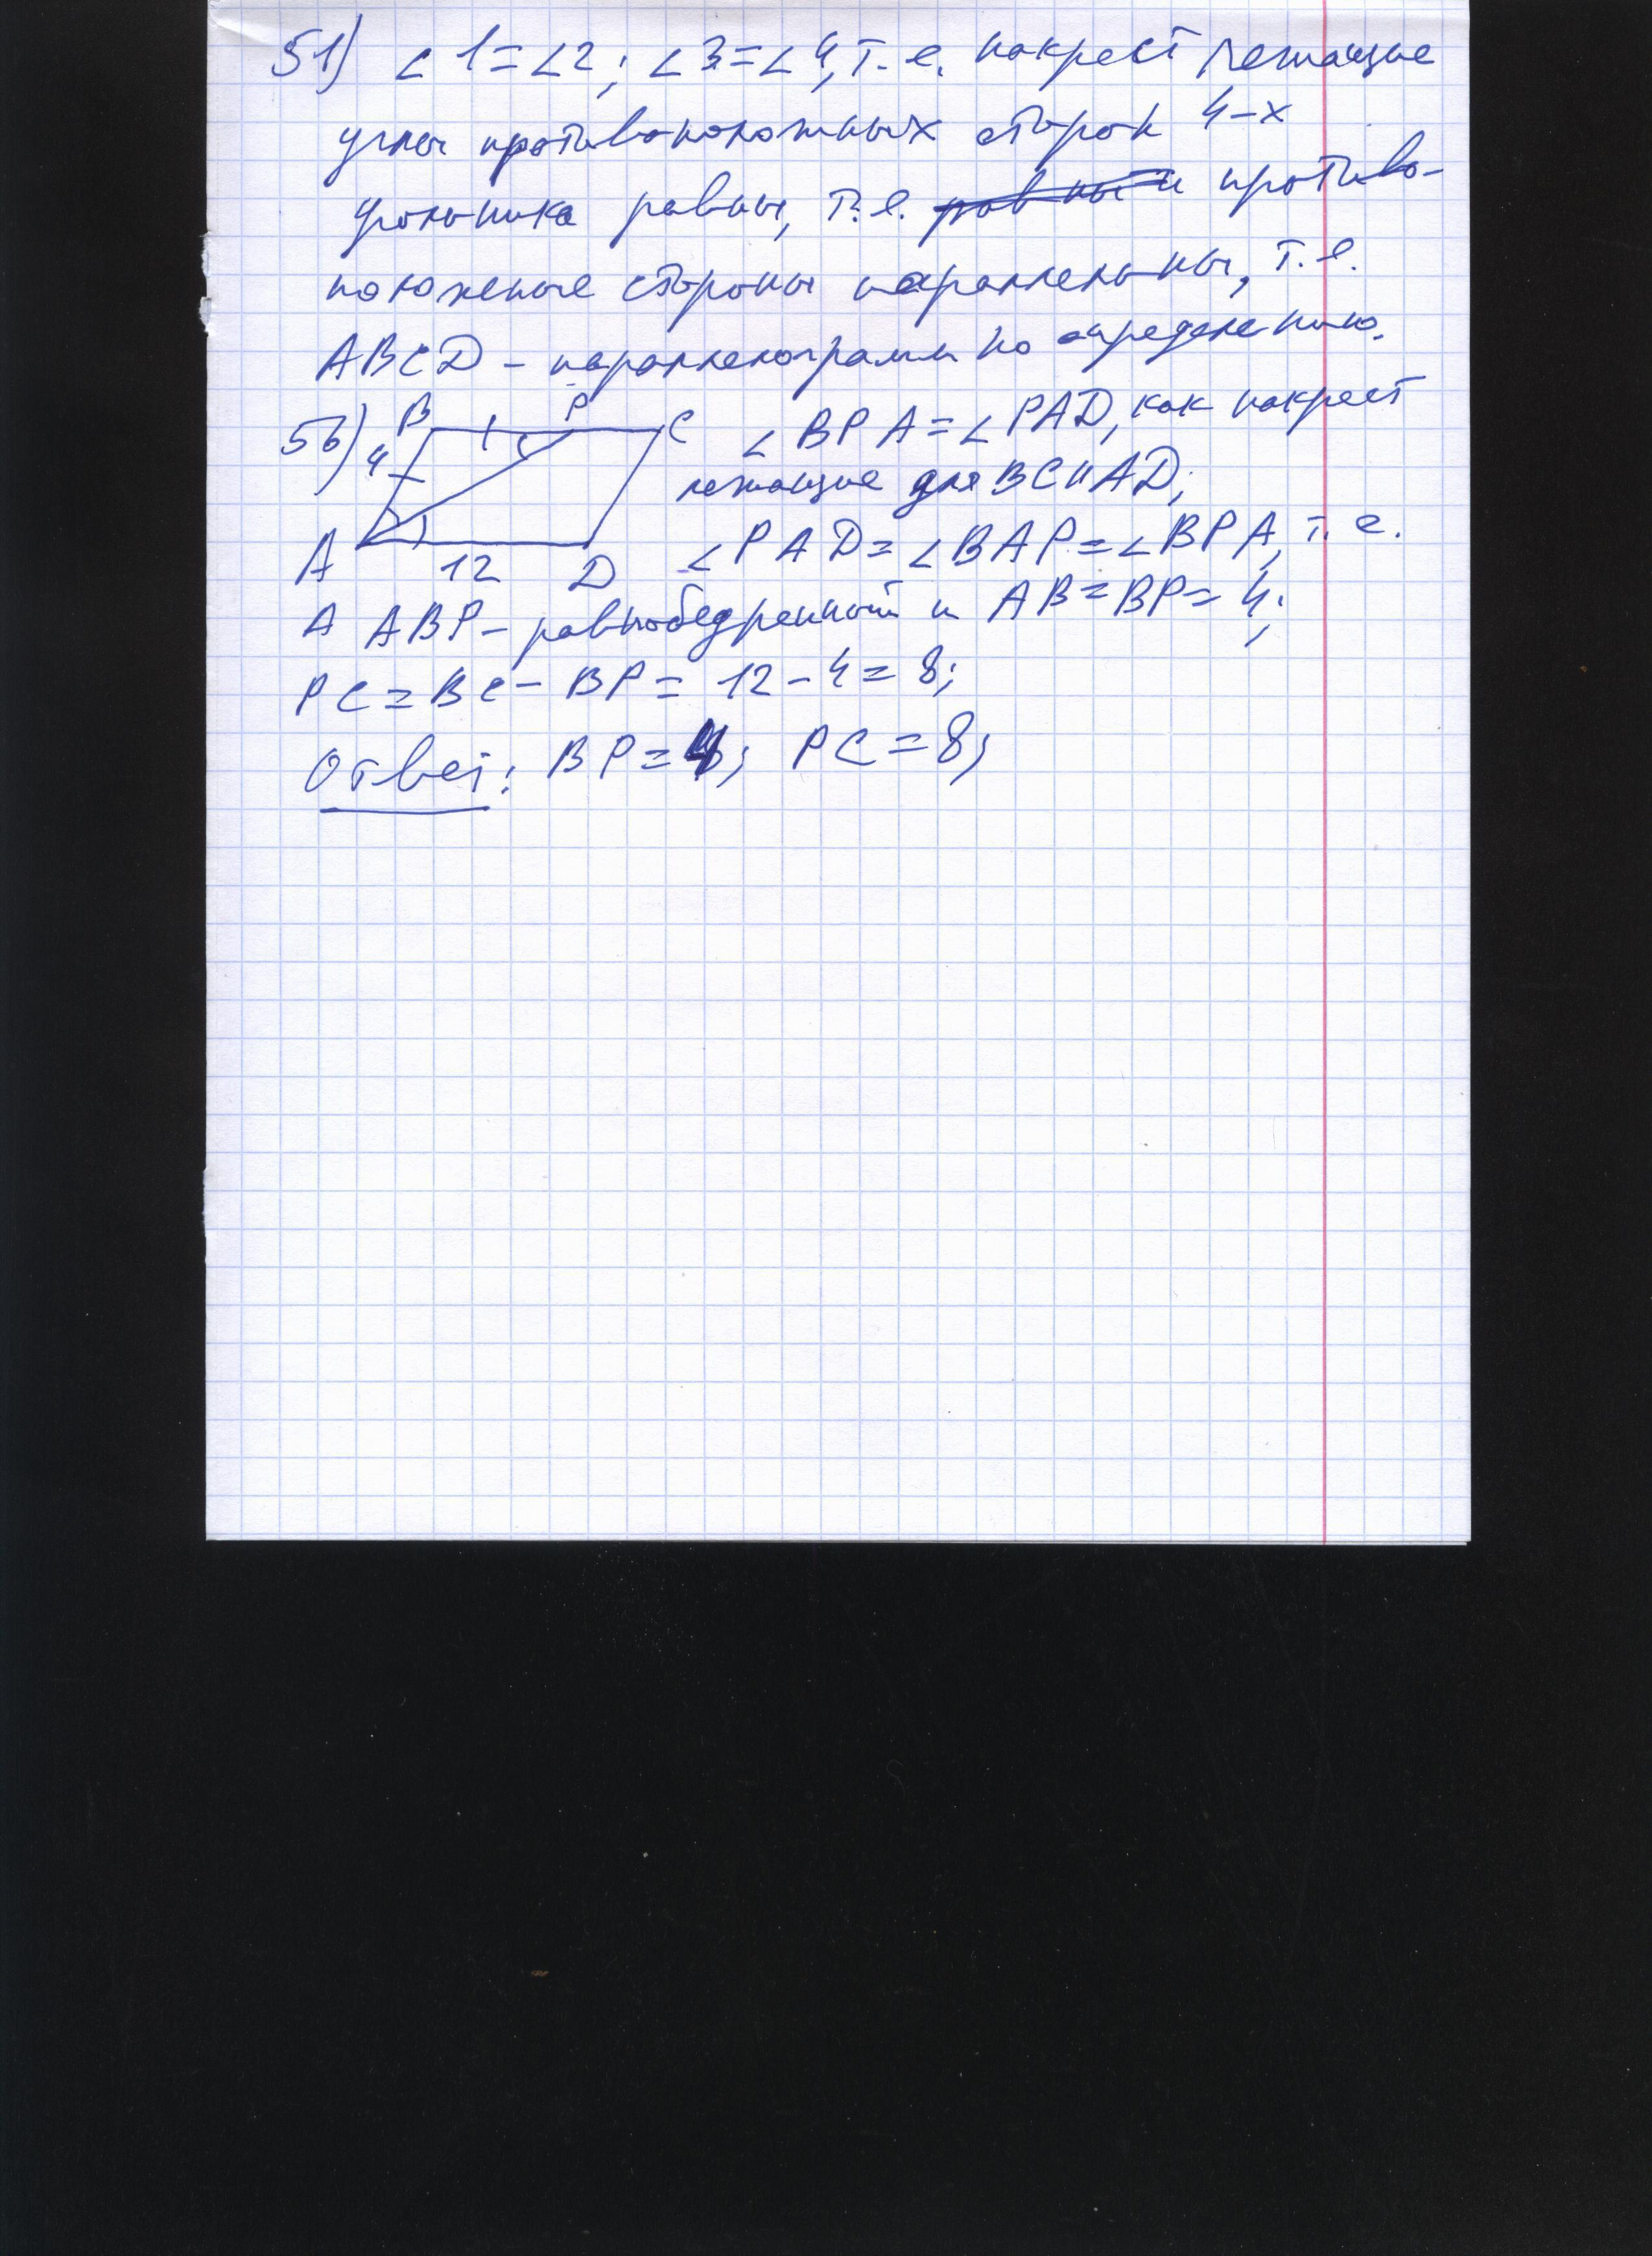 51) ∠1=∠2; ∠3=∠4, т.е. накрест лежащие
углы противоположных сторон 4-х
угольника равны, т.е. равны и противо-
положные стороны параллельны, т.е.
ABCD – параллелограмм по определению.
56) 4 B P C ∠BPA=∠PAD, как накрест
лежащие для BC∥AD;
A 12 D ∠PAD=∠BAP=∠BPA, т.е.
Δ ABP – равнобедренный и AB=BP=4;
PC=BC-BP=12-4=8;
Ответ: BP=4; PC=8;